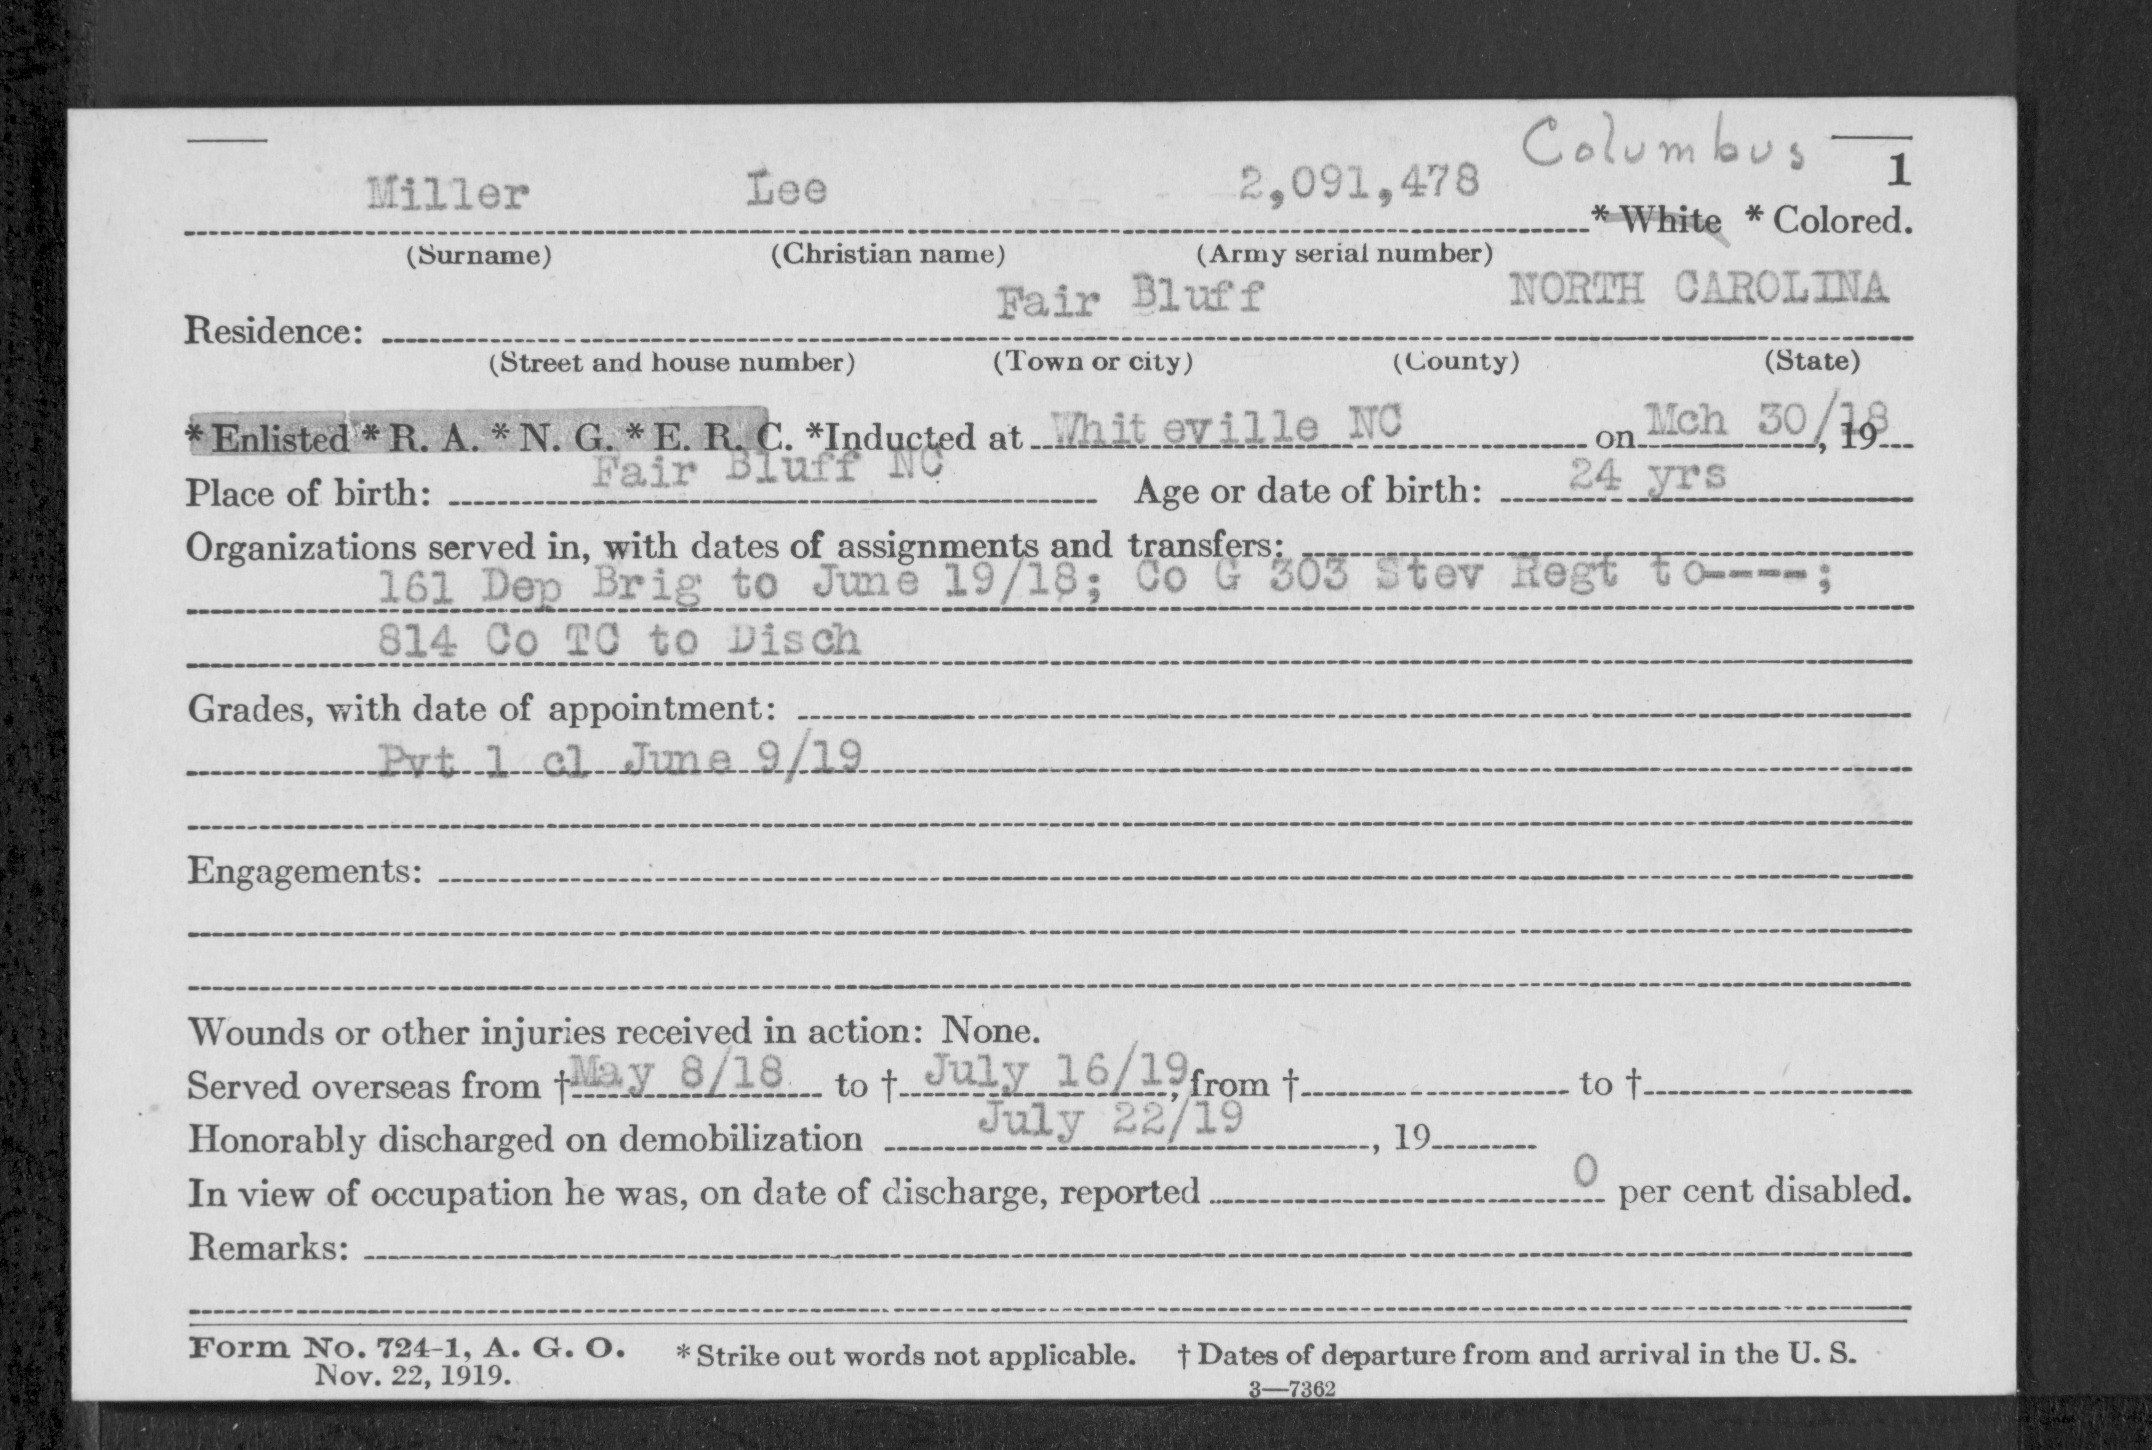 Columbus
1
Miller Lee 2,091,478 * White * Colored.
(Surname) (Christian name) (Army serial number)
Fair Bluff NORTH CAROLINA
Residence:
(Street and house number) (Town or city) (County) (State)
* Enlisted * R. A. * N. G. * E. R. C. *Inducted at Whiteville NC on Mch 30/18, 19
Place of birth: Fair Bluff NC Age or date of birth: 24 yrs
Organizations served in, with dates of assignments and transfers:
161 Dep Brig to June 19/18; Co G 303 Stev Regt to----;
814 Co TC to Disch
Grades, with date of appointment:
Pvt 1 cl June 9/19
Engagements:
Wounds or other injuries received in action: None.
Served overseas from † May 8/18 to † July 16/19, from † to †
Honorably discharged on demobilization July 22/19, 19
In view of occupation he was, on date of discharge, reported 0 per cent disabled.
Remarks:
Form No. 724-1, A. G. O. * Strike out words not applicable. † Dates of departure from and arrival in the U. S.
Nov. 22, 1919.
3—7362